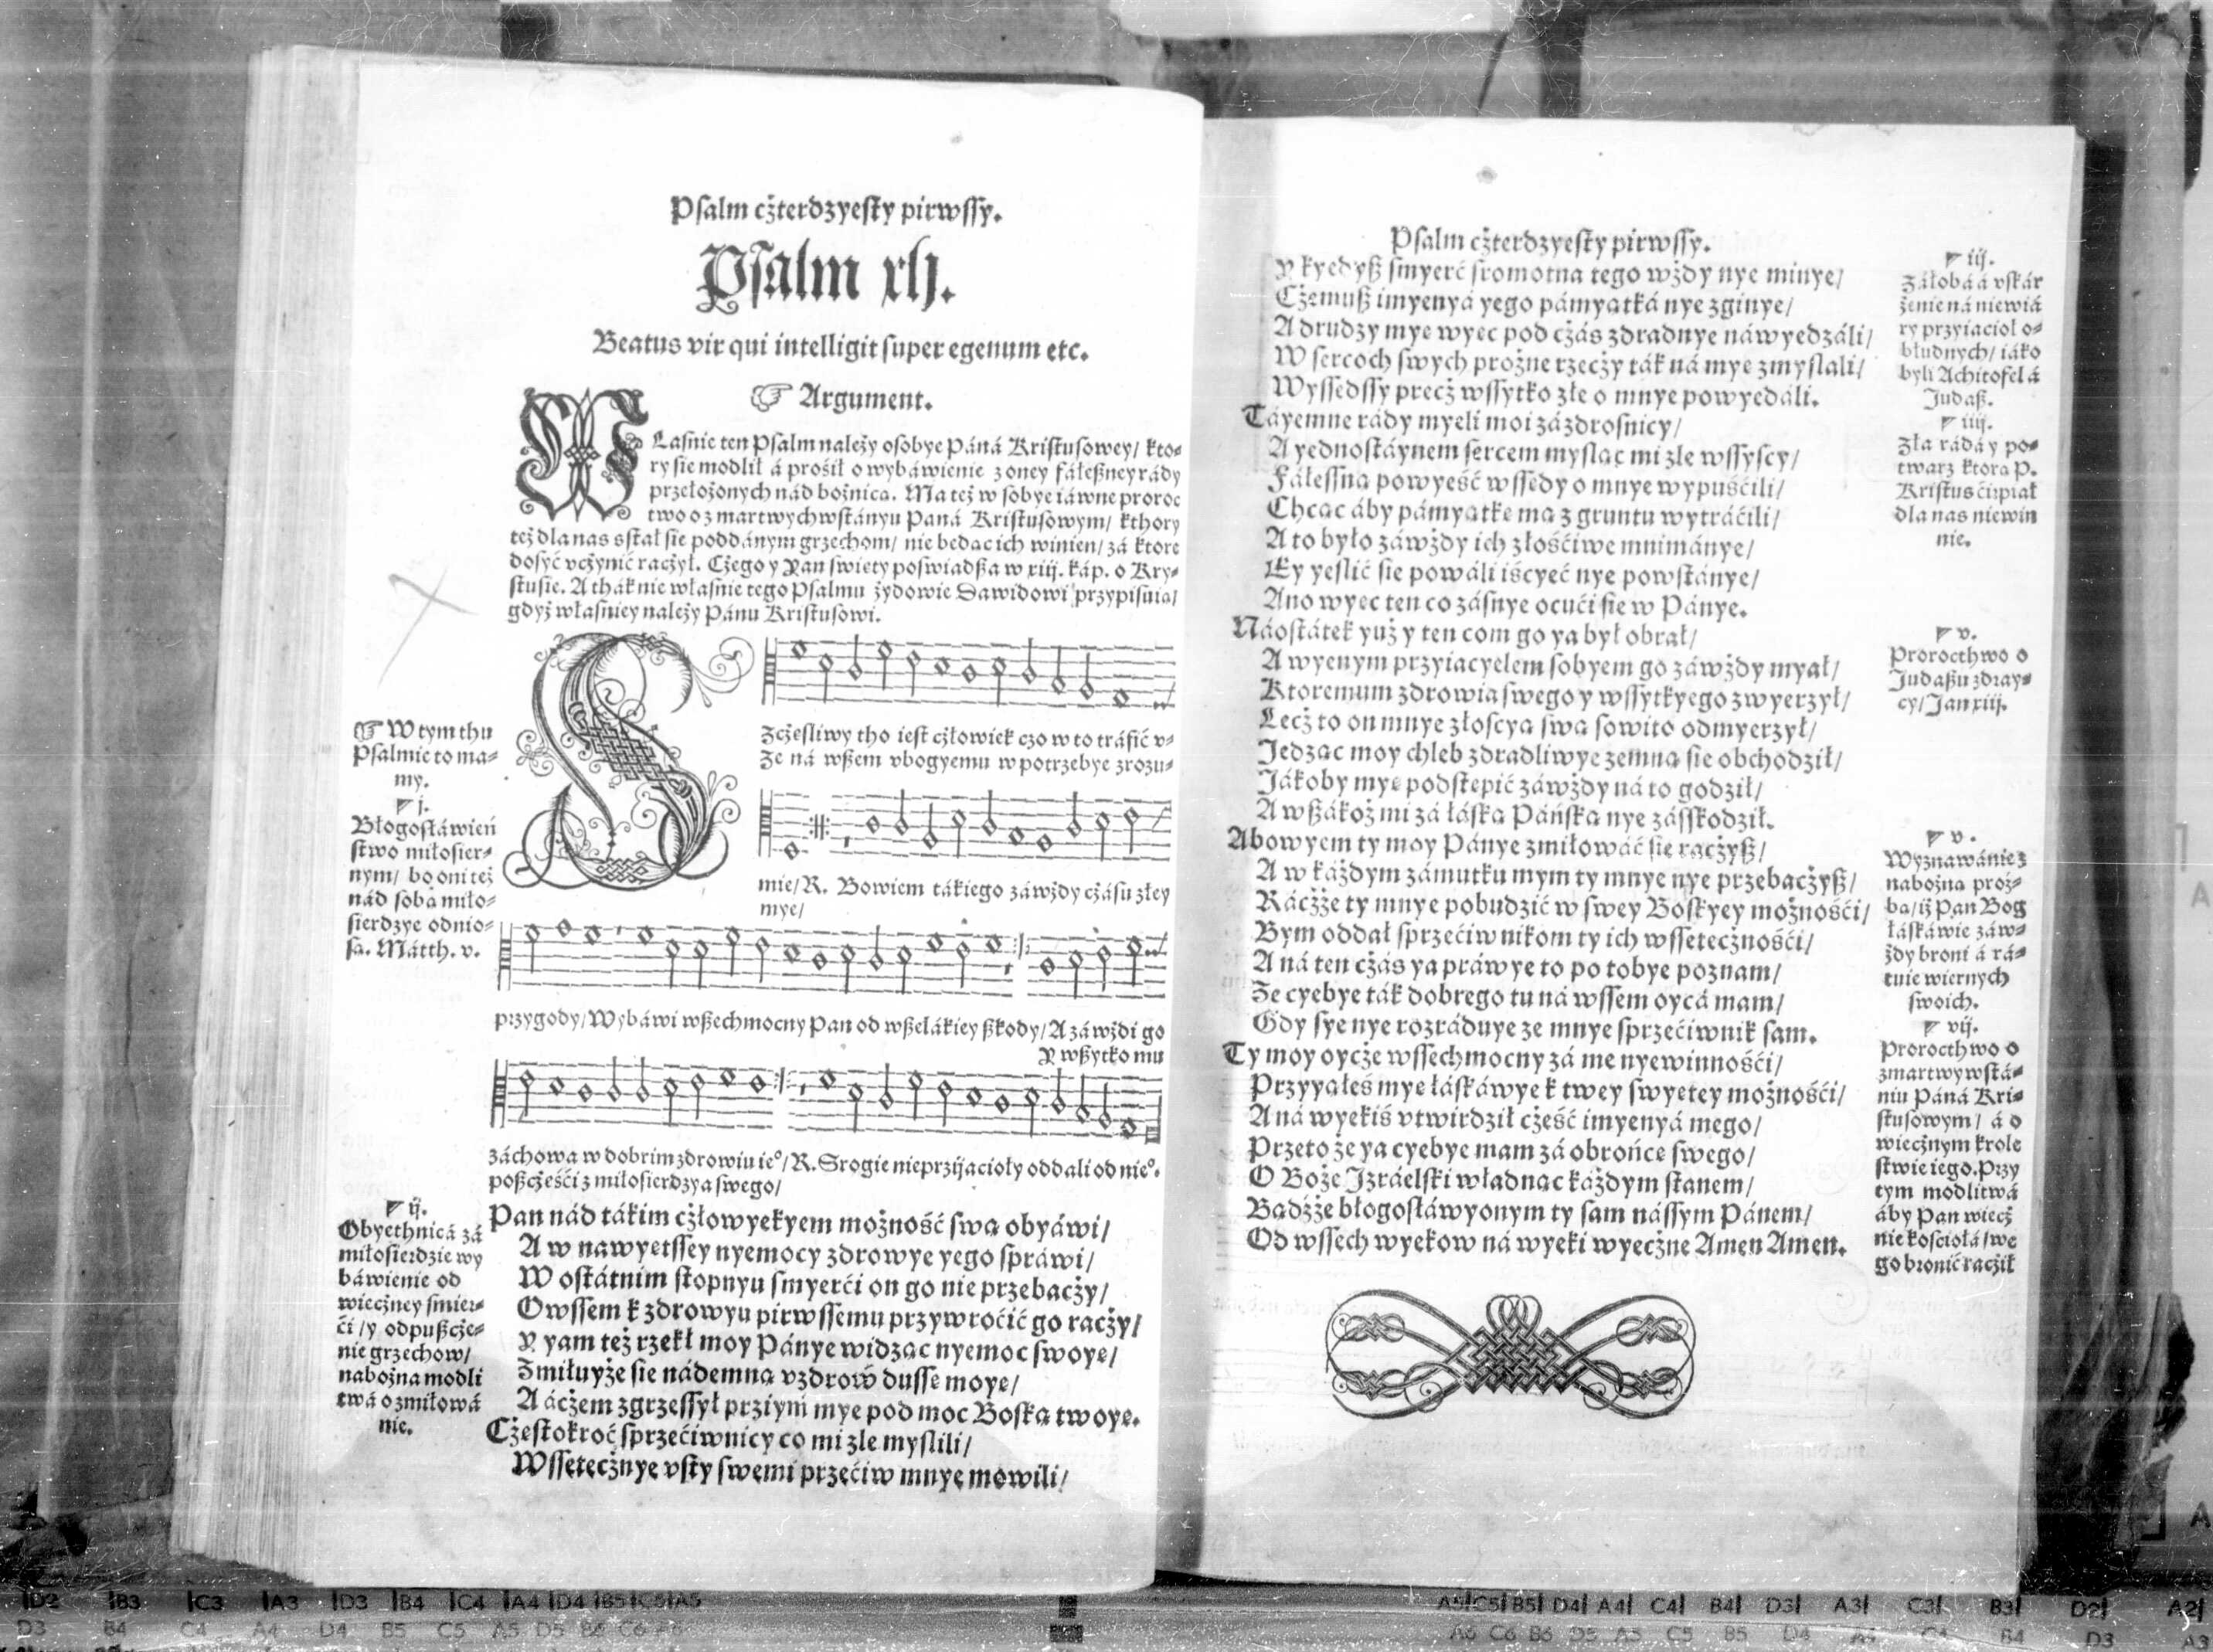 Psalm cżterdzyesty pirwssy.
Psalm xlj.
Beatus vir qui intelligit super egenum etc.
☞ Argument.
WLasnie ten Psalm należy osobye Páná Kristusowey/ kto⸗
ry sie modlił á prośił o wybáwienie z oney fáleßney rády
przełożonych nád bożnica. Ma też w sobye iáwne proroc
two o z martwychwstányu Paná Kristusowym/ kthory
też dla nas sstał sie poddánym grzechom/ nie bedac ich winien/ zá ktore
dosyć vcżynić racżył. Cżego y Pan swiety poswiadßa w xiij. káp. o Kry⸗
stusie. A thák nie własnie tego Psalmu żydowie Dawidowi przypisuia/
gdyż własniey należy Pánu Kristusowi.
☞ W tym thu
Psalmie to ma⸗
my.
j.
Błogosłáwień
stwo miłosier⸗
nym/ bo oni też
nád soba miło⸗
sierdzye odnio⸗
sa. Mátth. v.
SZcżesliwy tho iest cżłowiek czo w to tráfić v⸗
Że ná wßem vbogyemu w potrzebye zrozu⸗
mie/ R. Bowiem tákiego záwżdy cżásu złey
mye/
przygody/ Wybáwi wßechmocny Pan od wßelákiey ßkody/ A záwżdi go
Y wßytko mu
záchowa w dobrim zdrowiu ie°/ R. Srogie nieprzijacioły oddali od nie°.
poßcżeśći z miłosierdzya swego/
ij.
Obyethnicá zá
miłosierdzie wy
báwienie od
wiecżney smier⸗
ći /y odpußcże⸗
nie grzechow/
nabożna modli
twá o zmiłowá
nie.
Pan nád tákim cżłowyekyem możność swa obyáwi/
A w nawyetssey nyemocy zdrowye yego spráwi/
W ostátnim stopnyu smyerći on go nie przebacży/
Owssem k zdrowyu pirwssemu przywroćić go racży/
Y yam też rzekł moy Pánye widzac nyemoc swoye/
Zmiłuyże sie nádemna vzdrow dusse moye/
A ácżem zgrzessył prziymi mye pod moc Boska twoye.
Cżestokroć sprzećiwnicy co mi zle myslili/
Wssetecżnye vsty swemi przećiw mnye mowili/
Psalm cżterdzyesty pirwssy.
Y kyedyß smyerć sromotna tego wżdy nye minye/
Cżemuß imyenyá yego pámyatká nye zginye/
A drudzy mye wyec pod cżás zdradnye náwyedzáli/
W sercoch swych prożne rzecży ták ná mye zmyslali/
Wyssedssy precż wssytko złe o mnye powyedáli.
Táyemne rády myeli moi zázdrosnicy/
A yednostáynem sercem myslac mi zle wssyscy/
Fálessna powyeść wssedy o mnye wypuśćili/
Chcac áby pámyatke ma z gruntu wytráćili/
A to było záwżdy ich złośćiwe mnimánye/
Ey yeslić sie powáli iśćyeć nye powstánye/
Ano wyec ten co zásnye ocući sie w Pánye.
Náostátek yuż y ten com go ya był obrał/
A wyenym przyiacyelem sobyem go záwżdy myał/
Ktoremum zdrowia swego y wssytkyego zwyerzył/
Lecż to on mnye złoscya swa sowito odmyerzył/
Jedzac moy chleb zdradliwye zemna sie obchodził/
Jákoby mye podstepić záwżdy ná to godził/
A wßákoż mi zá łáska Páńska nye zásskodził.
Abowyem ty moy Pánye zmiłowáć sie racżyß/
A w káżdym zámutku mym ty mnye nye przebacżyß/
Rácżże ty mnye pobudzić w swey Boskyey możnośći/
Bym oddał sprzećiwnikom ty ich wssetecżnośći/
A ná ten cżás ya práwye to po tobye poznam/
Że cyebye ták dobrego tu ná wssem oycá mam/
Gdy sye nye rozráduye ze mnye sprzećiwnik sam.
Ty moy oycże wssechmocny zá me nyewinnośći/
Przyyałeś mye łáskáwye k twey swyetey możnośći/
A ná wyekiś vtwirdził cżeść imyenyá mego/
Przeto że ya cyebye mam zá obrońce swego/
O Boże Jzráelski władnac káżdym stanem/
Badżże błogosłáwyonym ty sam nássym Pánem/
Od wssech wyekow ná wyeki wyecżne Amen Amen.
iij.
Záłobá á vskár
żenie ná niewiá
ry przyiacioł o⸗
błudnych/ iáko
byli Achitofel á
Judaß.
iiij.
Zła rádá y po⸗
twarz ktora P.
Kristus ćirpiał
dla nas niewin
nie.
v.
Prorocthwo o
Judaßu zdray⸗
cy/ Jan xiij.
v.
Wyznawánie z
nabożna proż⸗
ba/ iż Pan Bog
łáskáwie záw⸗
żdy broni á rá⸗
tuie wiernych
swoich.
vij.
Prorocthwo o
zmartwywstá⸗
niu Páná Kri⸗
stusowym/ á o
wiecżnym krole
stwie iego. Przy
tym modlitwá
áby Pan wiecż
nie kosciołá swe
go bronić racżił